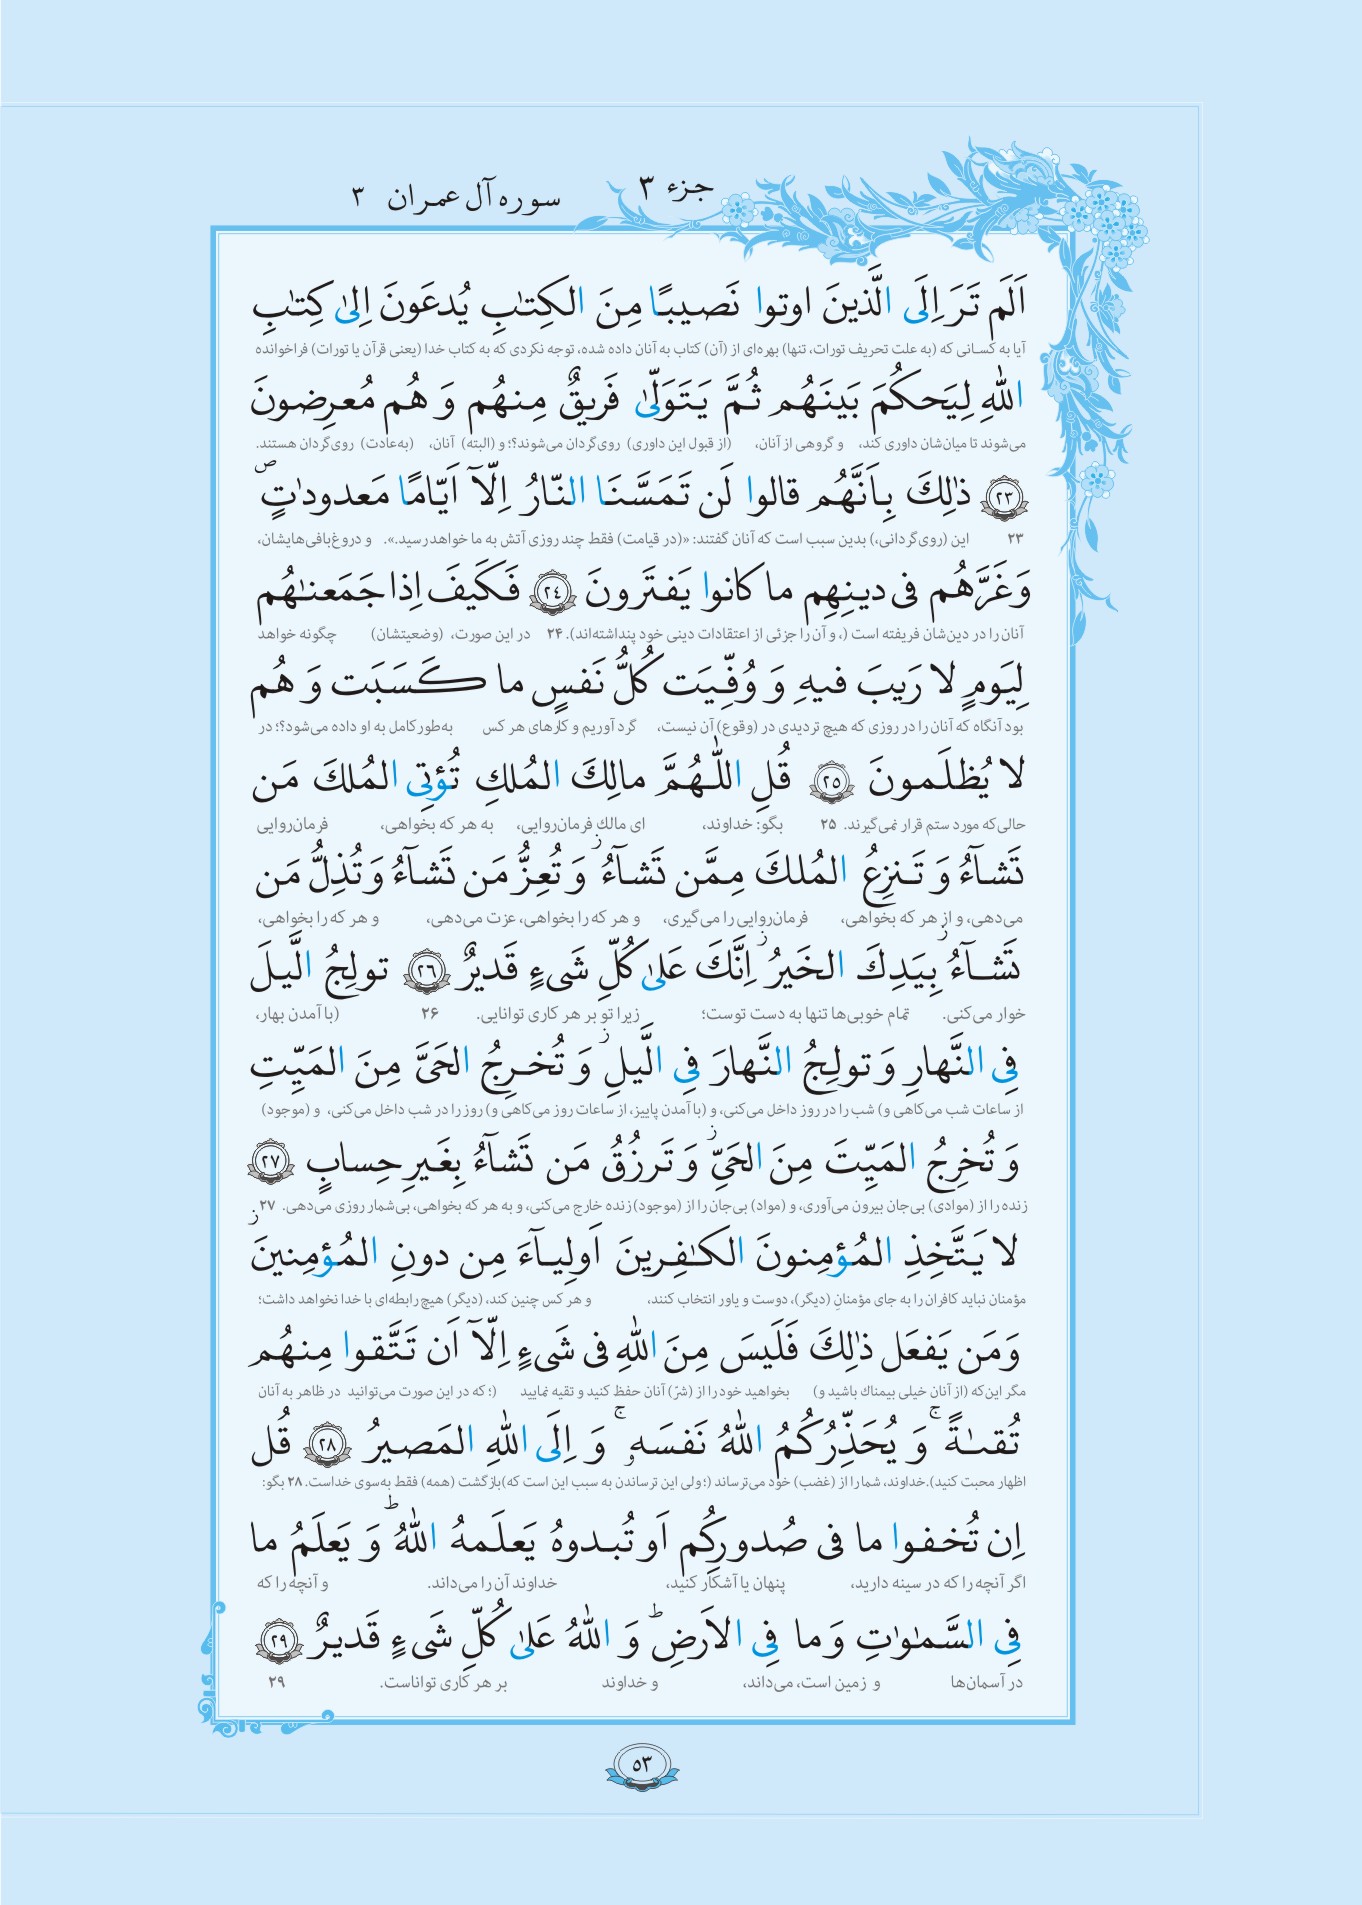 جزء ۳
سوره آل عمران ۳
اَلَم تَرَ اِلَى الَّذينَ اوتوا نَصيبًا مِنَ الكِتٰبِ يُدعَونَ اِلىٰ كِتٰبِ
آیا به کسانی که (به علت تحریف تورات، تنها) بهره‌ای از (آن) کتاب به آنان داده شده، توجه نکردی که به کتاب خدا (یعنی قرآن یا تورات) فراخوانده
اللهِ لِيَحكُمَ بَينَهُم ثُمَّ يَتَوَلّىٰ فَريقٌ مِنهُم وَ هُم مُعرِضونَ
می‌شوند تا میان‌شان داوری کند، و گروهی از آنان، (از قبول این داوری) روی‌گردان می‌شوند؟؛ و (البته) آنان، (به‌عادت) روی‌گردان هستند.
﴿٢٣﴾ ذٰلِكَ بِاَنَّهُم قالوا لَن تَمَسَّنَا النّارُ اِلّآ اَيّامًا مَعدودٰتٍ ۖ
۲۳ این (روی‌گردانی،) بدین سبب است که آنان گفتند: «(در قیامت) فقط چند روزی آتش به ما خواهد رسید.». و دروغ‌بافی‌هایشان،
وَ غَرَّهُم فى دينِهِم ما كانوا يَفتَرونَ ﴿٢٤﴾ فَكَيفَ اِذا جَمَعنٰهُم
آنان را در دین‌شان فریفته است (، و آن را جزئی از اعتقادات دینی خود پنداشته‌اند). ۲۴ در این صورت، (وضعیتشان) چگونه خواهد
لِيَومٍ لا رَيبَ فيهِ وَ وُفِّيَت كُلُّ نَفسٍ ما كَسَبَت وَ هُم
بود آنگاه که آنان را در روزی که هیچ تردیدی در (وقوع) آن نیست، گرد آوریم و کارهای هر کس به‌طور کامل به او داده می‌شود؟؛ در
لا يُظلَمونَ ﴿٢٥﴾ قُلِ اللّٰهُمَّ مالِكَ المُلكِ تُؤتِى المُلكَ مَن
حالی‌که مورد ستم قرار نمی‌گیرند. ۲۵ بگو: خداوند، ای مالك فرمان‌روایی، به هر که بخواهی، فرمان‌روایی
تَشآءُ وَ تَنزِعُ المُلكَ مِمَّن تَشآءُ ز وَ تُعِزُّ مَن تَشآءُ وَ تُذِلُّ مَن
می‌دهی، و از هر که بخواهی، فرمان‌روایی را می‌گیری، و هر که را بخواهی، عزت می‌دهی، و هر که را بخواهی،
تَشآءُ ز بِيَدِكَ الخَيرُ ز اِنَّكَ عَلىٰ كُلِّ شَىءٍ قَديرٌ ﴿٢٦﴾ تولِجُ الَّيلَ
خوار می‌کنی. تمام خوبی‌ها تنها به دست توست؛ زیرا تو بر هر کاری توانایی. ۲۶ (با آمدن بهار،
فِى النَّهارِ وَ تولِجُ النَّهارَ فِى الَّيلِ ز وَ تُخرِجُ الحَىَّ مِنَ المَيِّتِ
از ساعات شب می‌کاهی و) شب را در روز داخل می‌کنی، و (با آمدن پاییز، از ساعات روز می‌کاهی و) روز را در شب داخل می‌کنی، و (موجود)
وَ تُخرِجُ المَيِّتَ مِنَ الحَىِّ ز وَ تَرزُقُ مَن تَشآءُ بِغَيرِ حِسابٍ ﴿٢٧﴾
زنده را از (موادی) بی‌جان بیرون می‌آوری، و (مواد) بی‌جان را از (موجود) زنده خارج می‌کنی، و به هر که بخواهی، بی‌شمار روزی می‌دهی. ۲۷
لا يَتَّخِذِ المُؤمِنونَ الكٰفِرينَ اَولِيآءَ مِن دونِ المُؤمِنينَ ز
مؤمنان نباید کافران را به جای مؤمنانِ (دیگر)، دوست و یاور انتخاب کنند، و هر کس چنین کند، (دیگر) هیچ رابطه‌ای با خدا نخواهد داشت؛
وَ مَن يَفعَل ذٰلِكَ فَلَيسَ مِنَ اللهِ فى شَىءٍ اِلّآ اَن تَتَّقوا مِنهُم
مگر این‌که (از آنان خیلی بیمناك باشید و) بخواهید خود را از (شرّ) آنان حفظ کنید و تقیه نمایید (؛ که در این صورت می‌توانید در ظاهر به آنان
تُقىٰةً ۚ وَ يُحَذِّرُكُمُ اللهُ نَفسَهٗ ۚ وَ اِلَى اللهِ المَصيرُ ﴿٢٨﴾ قُل
اظهار محبت کنید).خداوند، شما را از (غضب) خود می‌ترساند (؛ ولی این ترساندن به سبب این است که)بازگشت (همه) فقط به‌سوی خداست. ۲۸ بگو:
اِن تُخفوا ما فى صُدورِكُم اَو تُبدوهُ يَعلَمهُ اللهُ ؕ وَ يَعلَمُ ما
اگر آنچه را که در سینه دارید، پنهان یا آشکار کنید، خداوند آن را می‌داند. و آنچه را که
فِى السَّمٰوٰتِ وَ ما فِى الاَرضِ ؕ وَ اللهُ عَلىٰ كُلِّ شَىءٍ قَديرٌ ﴿٢٩﴾
در آسمان‌ها و زمین است، می‌داند، و خداوند بر هر کاری تواناست. ۲۹
۵۳